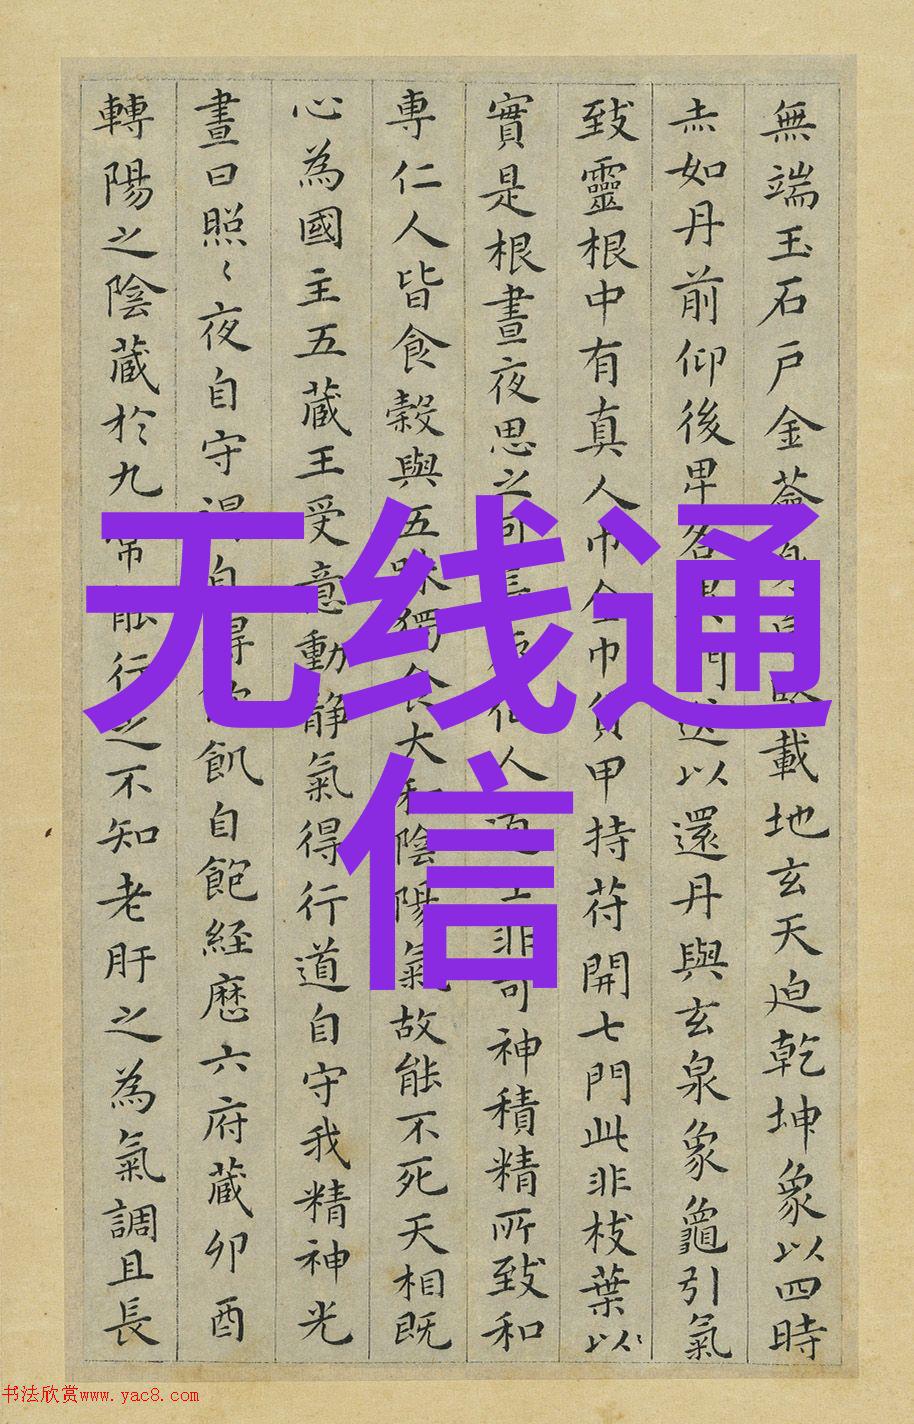 無端玉石戶金載地玄天迫乾坤象以四時
赤如丹前仰後卑以還丹與玄泉象龜引氣
致靈根中有真人巾金巾負甲持苻開七門此非枝葉以
實是根晝夜思之人道非可神積精所致和
專仁人皆食穀與五味獨食大和陰陽氣故能不死天相既
心為國主五藏王受意動靜氣得行道自守我精神光
晝日照〻夜自守飢自飽經歷六府藏卯酉
轉陽之陰藏於九常能行之不知老肝之為氣調且長
无线通
信
书法欣赏www.yac8.com